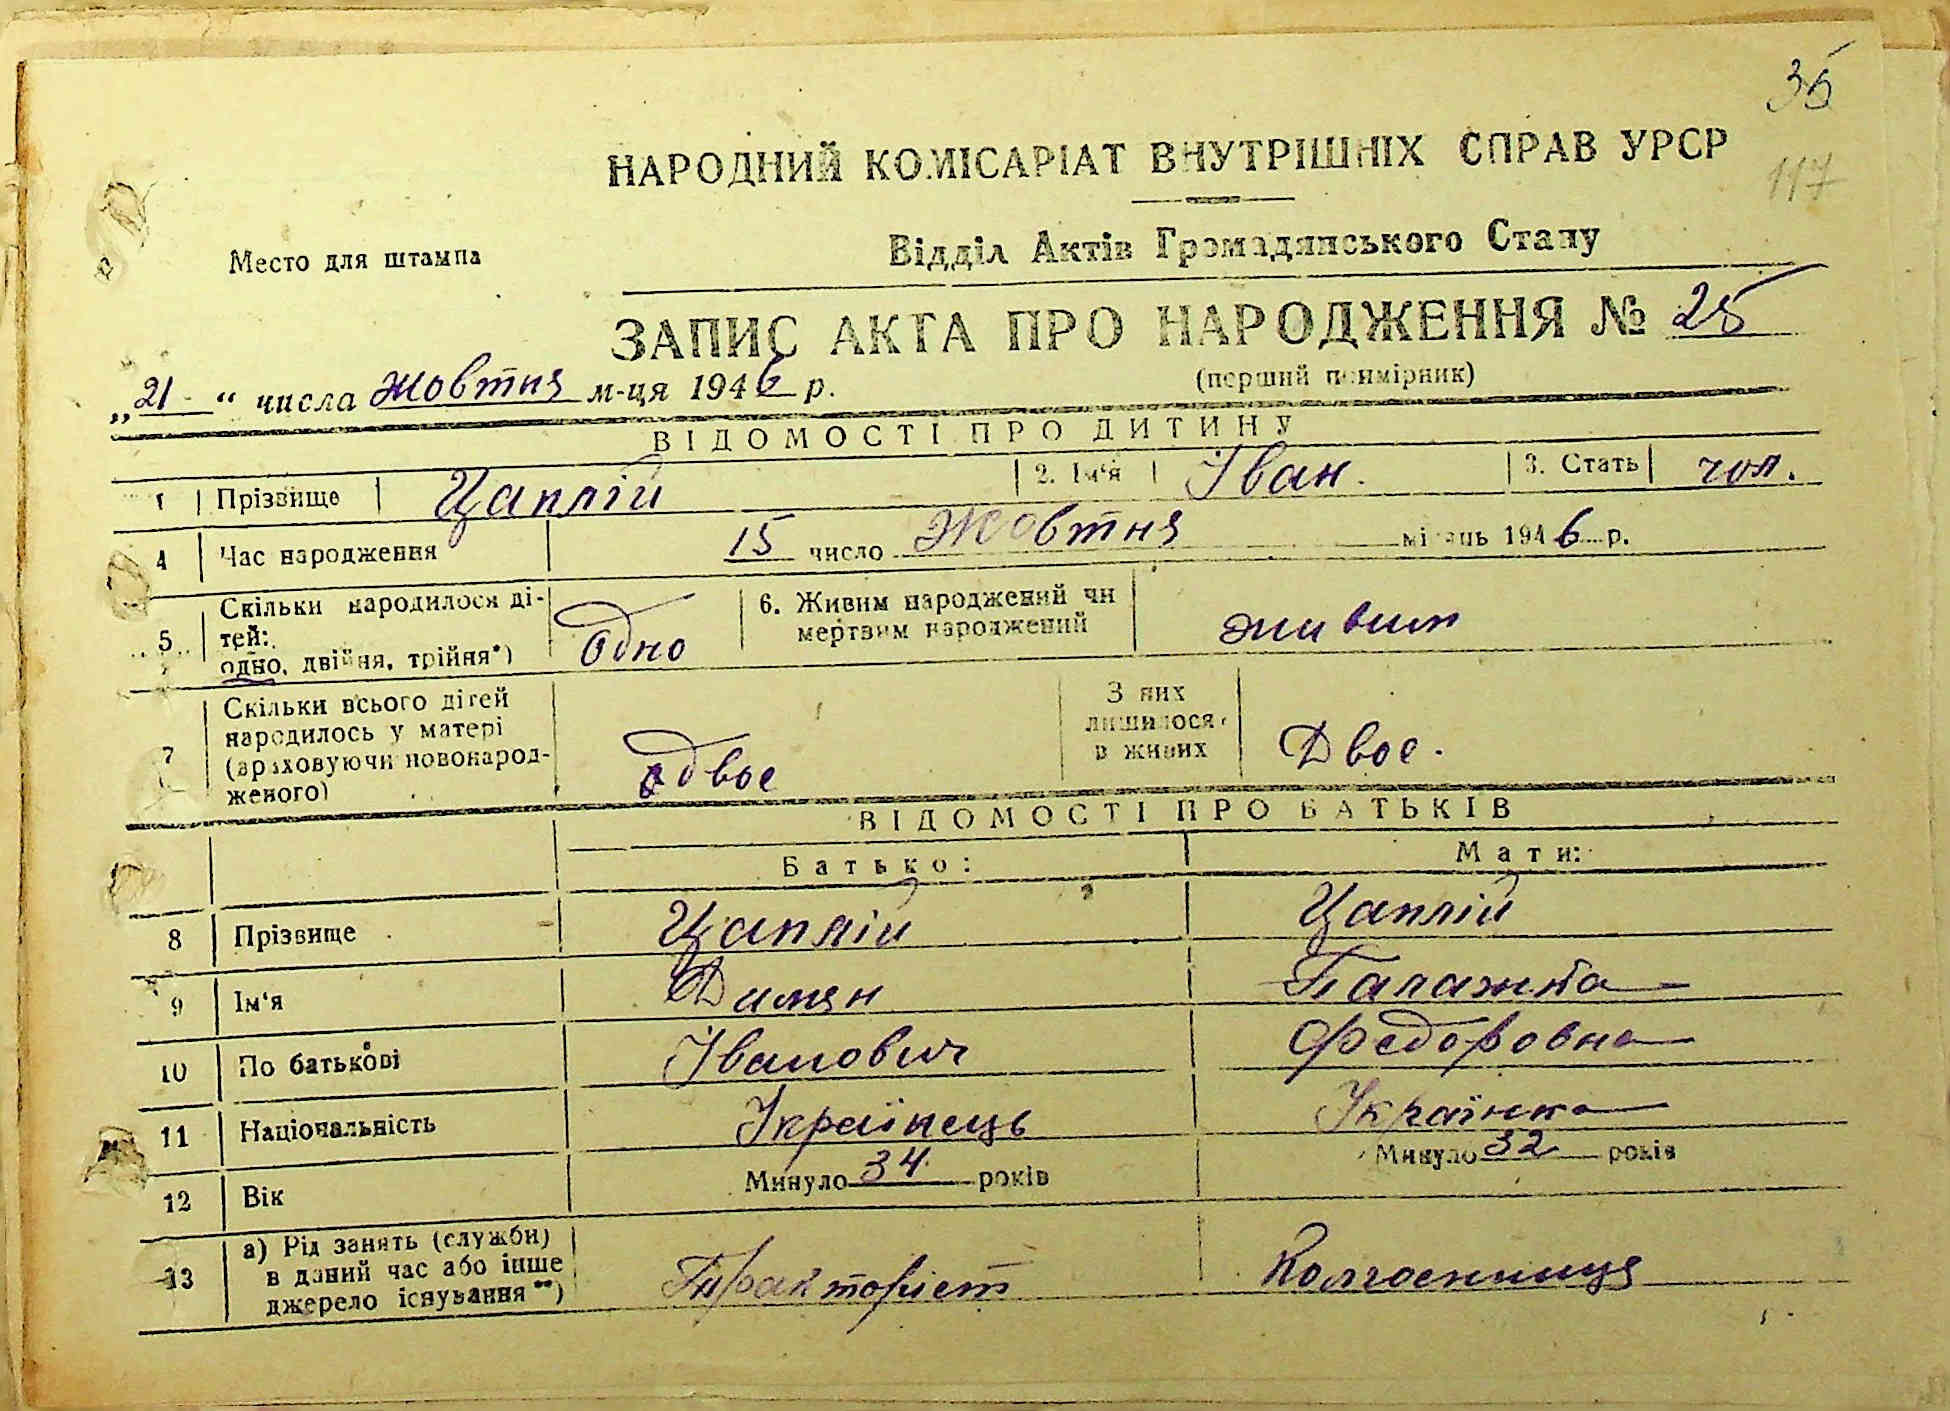 35
НАРОДНИЙ КОМІСАРІАТ ВНУТРІШНІХ СПРАВ УРСР
117
Место для штампа
Відділ Актів Громадянського Стану
ЗАПИС АКТА ПРО НАРОДЖЕННЯ № 25
„21“ числа Жовтня м-ця 1946 р.
(перший примірник)
ВІДОМОСТІ ПРО ДИТИНУ
1 Прізвище Цаплій 2. Ім‘я Іван. 3. Стать чол.
4 Час народження 15 число Жовтня місяць 1946 р.
5 Скільки народилося ді-
тей:
одно, двійня, трійня*) Одно
6. Живим народжений чи
мертвим народжений живим
7 Скільки всього дітей
народилось у матері
(враховуючи новонарод-
женого) двое
З них
лишилося
в живих Двое.
ВІДОМОСТІ ПРО БАТЬКІВ
Батько: Мати:
8 Прізвище Цаплій Цаплій
9 Ім‘я Димян Палажка
10 По батькові Іванович Федоровна
11 Національність Українець Українка
12 Вік Минуло 34 років Минуло 32 років
13 а) Рід занять (службн)
в даний час або інше
джерело існування**) Тракторіст Колгоспниця